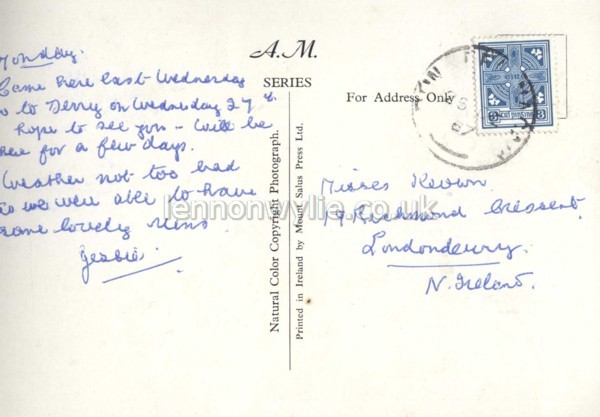 Monday.
Came here last Wednesday
to Derry on Wednesday 27th.
Hope to see you – Will be
here for a few days.
Weather not too bad
so we were able to have
some lovely runs
Jessie.
A.M.
SERIES
For Address Only
Natural Color Copyright Photograph.
Printed in Ireland by Mount Salus Press Ltd.
Misses Keown.
Richmond Crescent.
Londonderry.
N. Ireland.
lennonwylie.co.uk